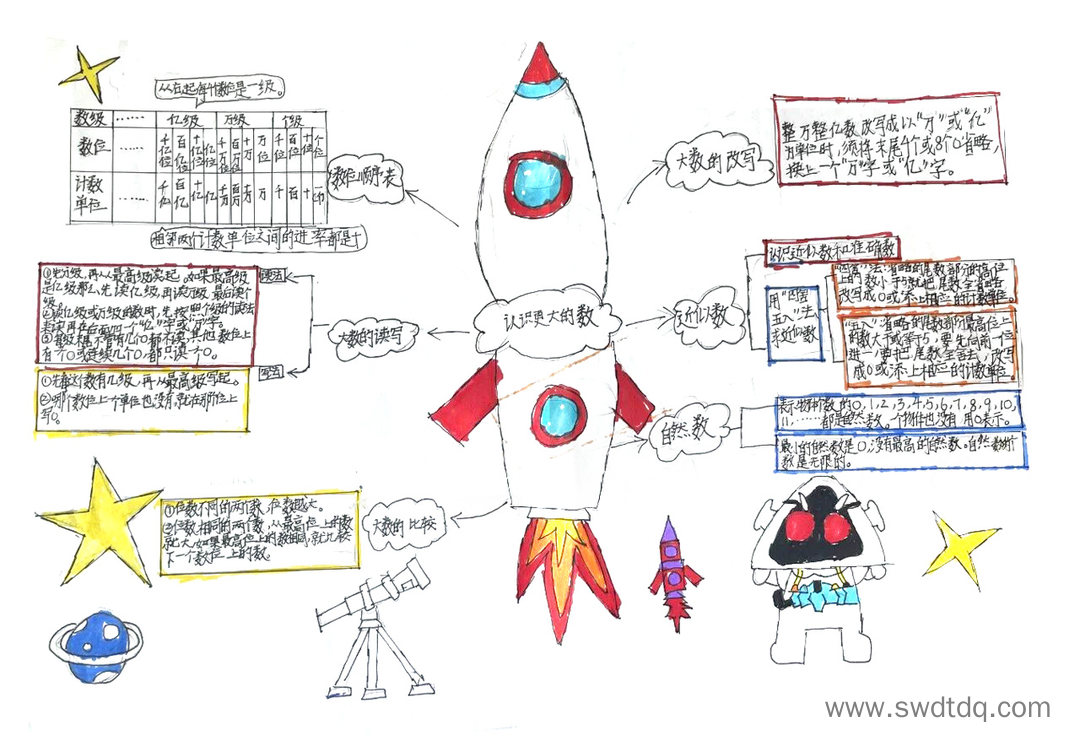 从右起每个数位是一级。
数级 …… 亿级 万级 个级
数位 …… 千亿位 百亿位 十亿位 亿位 千万位 百万位 十万位 万位 千位 百位 十位 个位
计数单位 …… 千亿 百亿 十亿 亿 千万 百万 十万 万 千 百 十 一(个)
相邻两个计数单位之间的进率都是十
数位顺序表
读法
①先分级,再从最高级读起。如果最高级
是亿级那么先读亿级,再读万级,最后读个
级。
②读亿级或万级的数时,先按照个级的读法
来读,再在后面加一个"亿"字或"万"字。
③每级末尾不管有几个0都不读,其他数位上
有一个0或连续几个0,都只读一个0。
大数的读写
写法
①先看这个数有几级,再从最高级写起。
②哪个数位上一个单位也没有,就在那个位上
写0。
①位数不同的两个数,位数越大。
②位数相同的两个数,从最高位上的数
就大,如果最高位上的数相同,就比较
下一个数位上的数。
大数的比较
认识更大的数
大数的改写
整万整亿数改写成以"万"或"亿"
为单位时,须将末尾4个或8个0省略,
换上一个"万"字或"亿"字。
近似数
认识近似数和准确数
用"四舍
五入"法
求近似数
"四舍"法:省略的尾数部分的最高位
上的数小于5就把尾数全省略
改写成0或添上相应的计数单位。
"五入":省略的尾数部分最高位上
的数大于或等于5,要先向前一位
进一,要把尾数全舍去,改写
成0或添上相应的计数单位。
自然数
表示物体个数的0,1,2,3,4,5,6,7,8,9,10,
11,……都是自然数。一个物件也没有用0表示。
最小的自然数是0,没有最高的自然数。自然数的个
数是无限的。
www.swdtdq.com